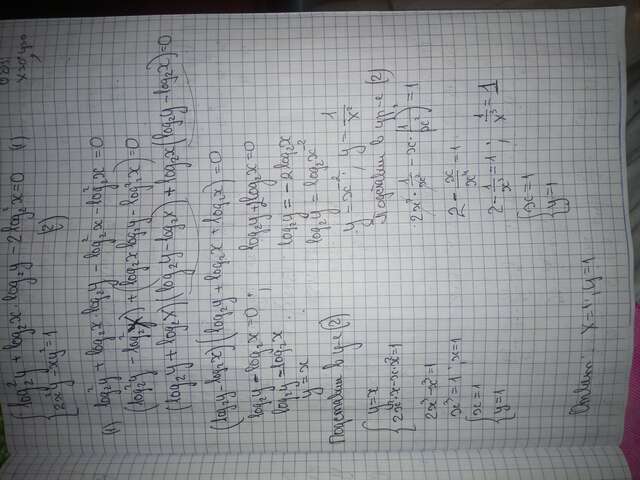 { log₂²y + log₂x·log₂y - 2log₂²x = 0 (1)
{ 2x²y - xy² = 1 (2)
(1) log₂²y + log₂x·log₂y - log₂²x - log₂²x = 0
(log₂²y - log₂²x) + (log₂x log₂y - log₂²x) = 0
(log₂y + log₂x)(log₂y - log₂x) + log₂x(log₂y - log₂x) = 0
(log₂y - log₂x)(log₂y + log₂x + log₂x) = 0
log₂y - log₂x = 0 ; log₂y + 2log₂x = 0
log₂y = log₂x log₂y = -2log₂x
y = x log₂y = log₂x⁻²
y = x⁻² ; y = 1/x²
Подставим в ур-е (2)
{ y = x
{ 2x²·x - x·x² = 1
2x³ - x³ = 1
x³ = 1 ; x = 1
{ x = 1
{ y = 1
Подставим в ур-е (2)
2x²·1/x² - x·(1/x²)² = 1
2 - x/x⁴ = 1
2 - 1/x³ = 1 ; 1/x³ = 1
{ x = 1
{ y = 1
Ответ: x = 1; y = 1